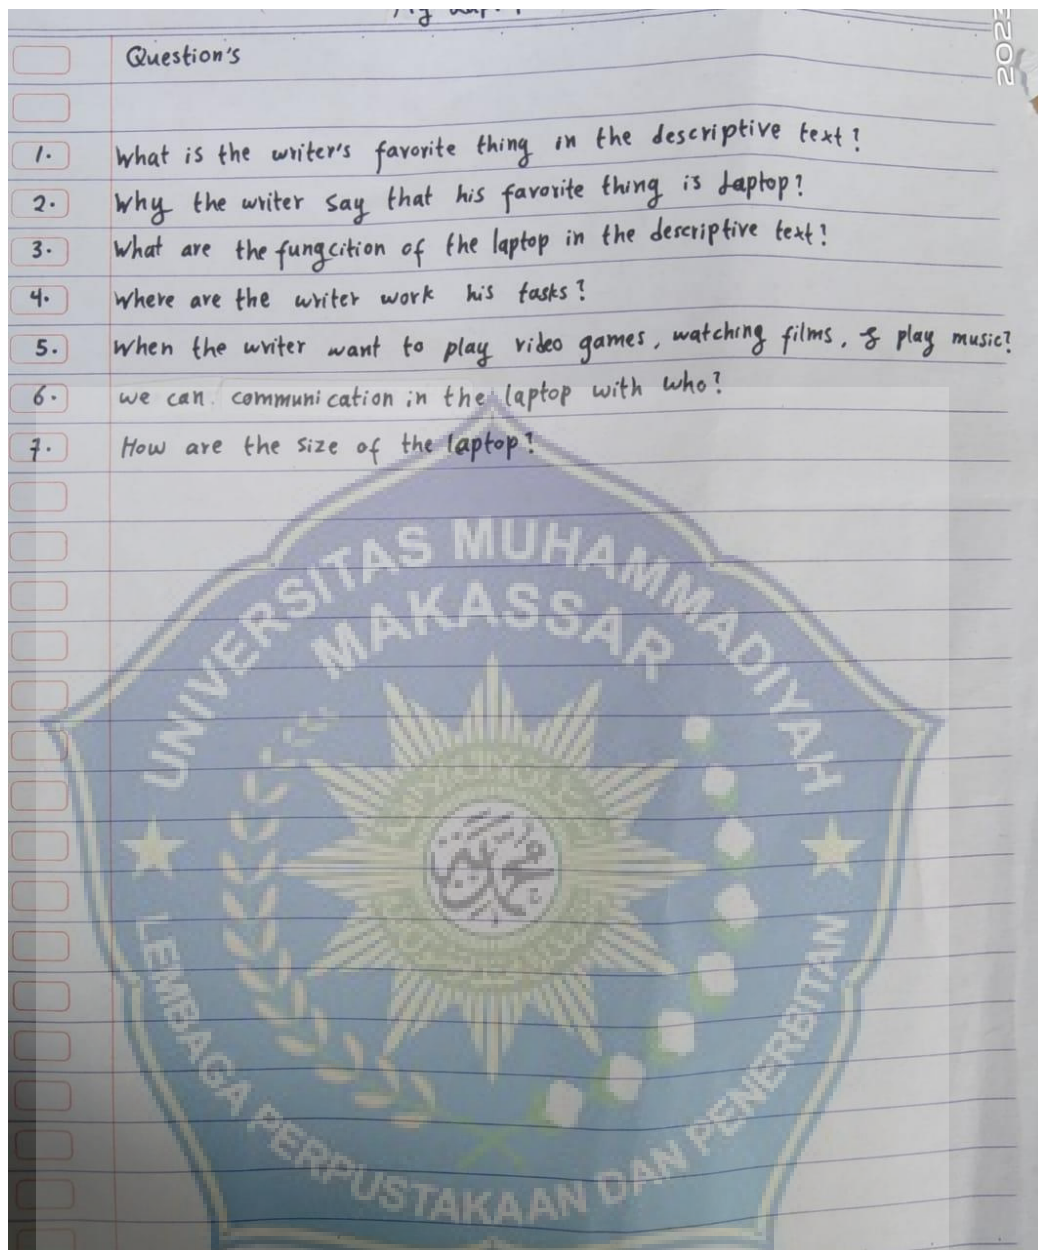 My
Question's
1. What is the writer's favorite thing in the descriptive text?
2. Why the writer say that his favorite thing is Laptop?
3. What are the fungcition of the laptop in the descriptive text?
4. Where are the writer work his tasks?
5. When the writer want to play video games, watching films, & play music?
6. we can communication in the laptop with who?
7. How are the size of the laptop?
UNIVERSITAS MUHAMMADIYAH
MAKASSAR
محمد
LEMBAGA PERPUSTAKAAN DAN PENERBITAN
2023